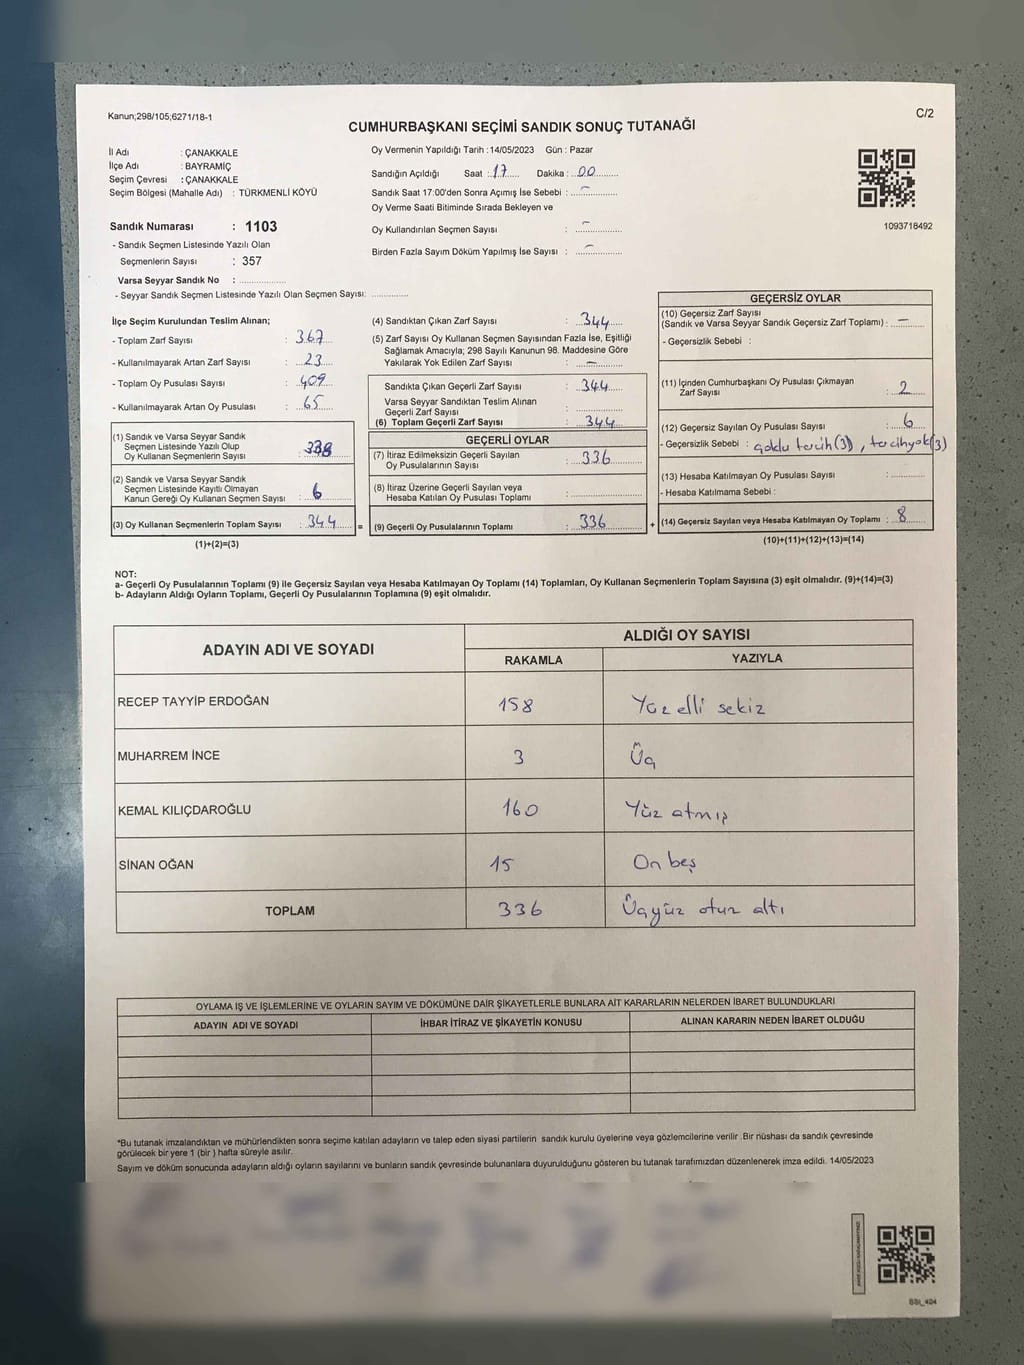 Kanun;298/105;6271/18-1
C/2
CUMHURBAŞKANI SEÇİMİ SANDIK SONUÇ TUTANAĞI
İl Adı : ÇANAKKALE
İlçe Adı : BAYRAMİÇ
Seçim Çevresi : ÇANAKKALE
Seçim Bölgesi (Mahalle Adı) : TÜRKMENLİ KÖYÜ
Sandık Numarası : 1103
- Sandık Seçmen Listesinde Yazılı Olan
Seçmenlerin Sayısı : 357
Varsa Seyyar Sandık No :
- Seyyar Sandık Seçmen Listesinde Yazılı Olan Seçmen Sayısı:
Oy Vermenin Yapıldığı Tarih : 14/05/2023 Gün : Pazar
Sandığın Açıldığı Saat : 17 Dakika : 00
Sandık Saat 17:00'den Sonra Açımış İse Sebebi : -
Oy Verme Saati Bitiminde Sırada Bekleyen ve
Oy Kullandırılan Seçmen Sayısı : -
Birden Fazla Sayım Döküm Yapılmış İse Sayısı : -
1093718492
İlçe Seçim Kurulundan Teslim Alınan;
- Toplam Zarf Sayısı : 367
- Kullanılmayarak Artan Zarf Sayısı : 23
- Toplam Oy Pusulası Sayısı : 409
- Kullanılmayarak Artan Oy Pusulası : 65
(1) Sandık ve Varsa Seyyar Sandık
Seçmen Listesinde Yazılı Olup
Oy Kullanan Seçmenlerin Sayısı : 338
(2) Sandık ve Varsa Seyyar Sandık
Seçmen Listesinde Kayıtlı Olmayan
Kanun Gereği Oy Kullanan Seçmen Sayısı : 6
(3) Oy Kullanan Seçmenlerin Toplam Sayısı : 344 =
(1)+(2)=(3)
(4) Sandıktan Çıkan Zarf Sayısı : 344
(5) Zarf Sayısı Oy Kullanan Seçmen Sayısından Fazla İse, Eşitliği
Sağlamak Amacıyla; 298 Sayılı Kanunun 98. Maddesine Göre
Yakılarak Yok Edilen Zarf Sayısı : -
Sandıkta Çıkan Geçerli Zarf Sayısı : 344
Varsa Seyyar Sandıktan Teslim Alınan
Geçerli Zarf Sayısı :
(6) Toplam Geçerli Zarf Sayısı : 344
GEÇERLİ OYLAR
(7) İtiraz Edilmeksizin Geçerli Sayılan
Oy Pusulalarının Sayısı : 336
(8) İtiraz Üzerine Geçerli Sayılan veya
Hesaba Katılan Oy Pusulası Toplamı :
(9) Geçerli Oy Pusulalarının Toplamı : 336 +
GEÇERSİZ OYLAR
(10) Geçersiz Zarf Sayısı
(Sandık ve Varsa Seyyar Sandık Geçersiz Zarf Toplamı) : -
- Geçersizlik Sebebi :
(11) İçinden Cumhurbaşkanı Oy Pusulası Çıkmayan
Zarf Sayısı : 2
(12) Geçersiz Sayılan Oy Pusulası Sayısı : 6
- Geçersizlik Sebebi : çoklu tercih (3), tercihyok(3)
(13) Hesaba Katılmayan Oy Pusulası Sayısı :
- Hesaba Katılmama Sebebi :
(14) Geçersiz Sayılan veya Hesaba Katılmayan Oy Toplamı : 8
(10)+(11)+(12)+(13)=(14)
NOT:
a- Geçerli Oy Pusulalarının Toplamı (9) ile Geçersiz Sayılan veya Hesaba Katılmayan Oy Toplamı (14) Toplamları, Oy Kullanan Seçmenlerin Toplam Sayısına (3) eşit olmalıdır. (9)+(14)=(3)
b- Adayların Aldığı Oyların Toplamı, Geçerli Oy Pusulalarının Toplamına (9) eşit olmalıdır.
ADAYIN ADI VE SOYADI
ALDIĞI OY SAYISI
RAKAMLA YAZIYLA
RECEP TAYYİP ERDOĞAN 158 Yüz elli sekiz
MUHARREM İNCE 3 Üç
KEMAL KILIÇDAROĞLU 160 Yüz atmış
SİNAN OĞAN 15 On beş
TOPLAM 336 Üçyüz otuz altı
OYLAMA İŞ VE İŞLEMLERİNE VE OYLARIN SAYIM VE DÖKÜMÜNE DAİR ŞİKAYETLERLE BUNLARA AİT KARARLARIN NELERDEN İBARET BULUNDUKLARI
ADAYIN ADI VE SOYADI İHBAR İTİRAZ VE ŞİKAYETİN KONUSU ALINAN KARARIN NEDEN İBARET OLDUĞU
*Bu tutanak imzalandıktan ve mühürlendikten sonra seçime katılan adayların ve talep eden siyasi partilerin sandık kurulu üyelerine veya gözlemcilerine verilir. Bir nüshası da sandık çevresinde
görülecek bir yere 1 (bir ) hafta süreyle asılır.
Sayım ve döküm sonucunda adayların aldığı oyların sayılarını ve bunların sandık çevresinde bulunanlara duyurulduğunu gösteren bu tutanak tarafımızdan düzenlenerek imza edildi. 14/05/2023